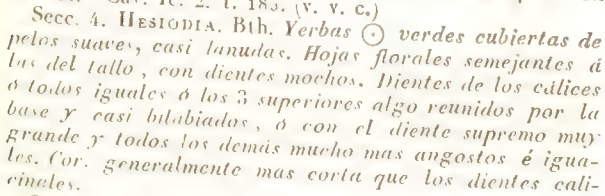 Cav. Ic. 2. t. 183. (v. v. c.)
Secc. 4. HESIODIA. Bth. Yerbas ⊙ verdes cubiertas de
pelos suaves, casi lanudas. Hojas florales semejantes á
las del tallo, con dientes mochos. Dientes de los cálices
ó todos iguales ó los 3 superiores algo reunidos por la
base y casi bilabiados, ó con el diente supremo muy
grande y todos los demás mucho mas angostos é igua-
les. Cor. generalmente mas corta que los dientes cali-
cinales.